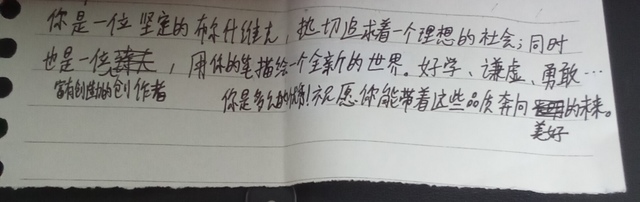 你是一位坚定的布尔什维克，热切追求着一个理想的社会；同时
也是一位，用你的笔描绘一个全新的世界。好学、谦虚、勇敢…
富有创造力的创作者 你是多么的优秀！祝愿你能带着这些品质奔向的未来。
美好